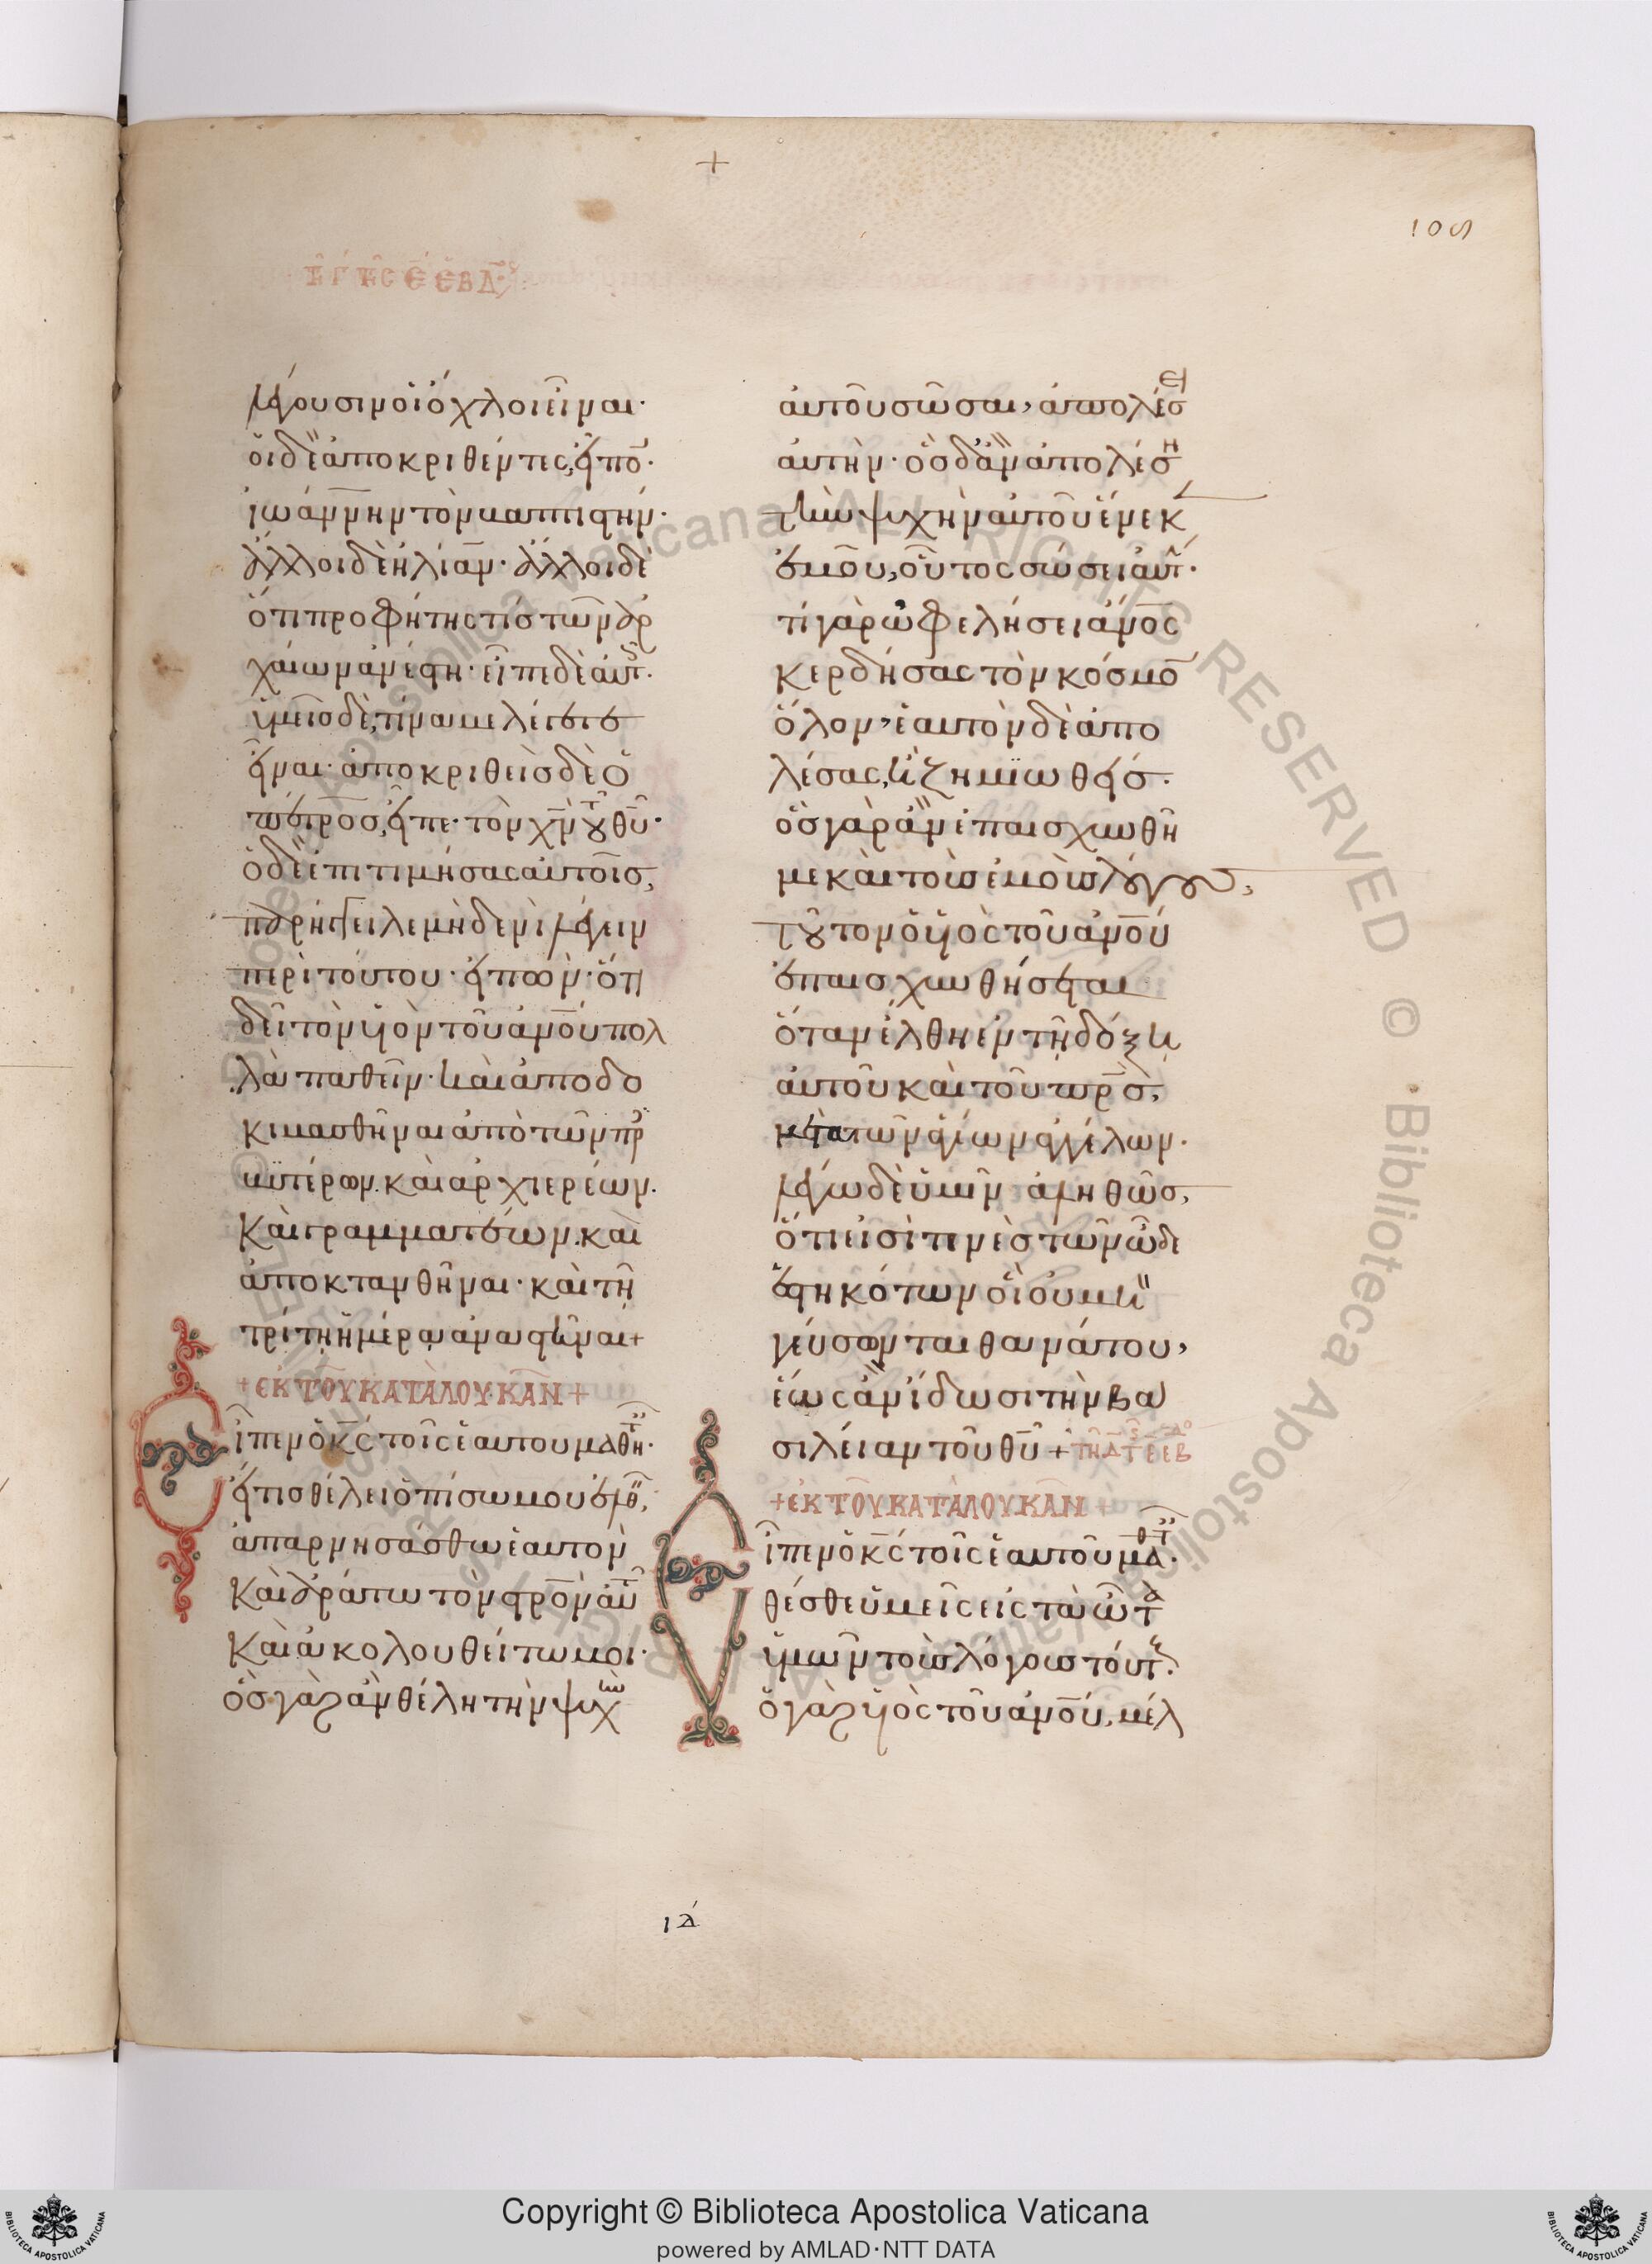 +
105
τῆ γ τῆς ε ἑβδ
λέγουσιν οἱ ὄχλοι εἶναι·
οἱ δὲ ἀποκριθέντες, εἶπο̄·
ἰωάννην τὸν βαπτιστήν·
ἄλλοι δὲ ἠλίαν· ἄλλοι δὲ
ὅτι προφήτης τίς τῶν ἀρ
χαίων ἀνέστη· εἶπε δὲ αὐτ·
ὑμεῖς δὲ, τίνα με λέγετε
εἶναι· ἀποκριθεὶς δὲ ὁ
πέτρος, εἶπε· τὸν χ̄ν τοῦ θ̄υ·
ὁ δὲ ἐπιτιμήσας αὐτοῖς,
παρήγγειλε μηδενὶ λέγειν
περὶ τούτου· εἰπὼν· ὅτι
δεῖ τὸν υἱὸν τοῦ ἀν̄ου πολ
λὰ παθεῖν· καὶ ἀποδο
κιμασθῆναι ἀπὸ τῶν πρε
σβυτέρων· καὶ ἀρχιερέων·
καὶ γραμματέων· καὶ
ἀποκτανθῆναι· καὶ τῆ
τρίτη ἡμέρα ἀναστῆναι+
+ ἐκ τοῦ κατὰ λουκᾶν +
Εἶπεν ὁ κ̄ς τοῖς ἑαυτοῦ μαθητ·
εἴ τις θέλει ὀπίσω μου ἐλθ,
ἀπαρνησάσθω ἑαυτὸν
καὶ ἀράτω τὸν στ̄ρον αὐτ
καὶ ἀκολουθείτω μοι·
ὃς γὰρ ἂν θέλη τὴν ψυχὴν
αὐτοῦ σῶσαι, ἀπολέσει
αὐτήν· ὃς δ' ἂν ἀπολέση
τὴν ψυχὴν αὐτοῦ ἕνεκ
ἐμοῦ, οὗτος σώσει αὐτ·
τί γὰρ ὠφελήσει ἄν̄ος
κερδήσας τὸν κόσμο̄
ὅλον, ἑαυτὸν δὲ ἀπο
λέσας, ἢ ζημιωθείς·
ὃς γὰρ ἂν ἐπαισχυνθῆ
με καὶ τοὺς ἐμοὺς λόγους,
τοῦτον ὁ υἱὸς τοῦ ἀν̄ου
ἐπαισχυνθήσεται
ὅταν ἔλθη ἐν τῆ δόξη
αὐτοῦ καὶ τοῦ π̄ρς,
μετὰ τῶν ἁγίων ἀγγέλων·
λέγω δὲ ὑμῖν ἀληθῶς,
ὅτι εἰσί τινες τῶν ὧδε
ἑστηκότων οἳ οὐ μὴ
γεύσωνται θανάτου,
ἕως ἂν ἴδωσι τὴν βα
σιλείαν τοῦ θ̄υ +
+ ἐκ τοῦ κατὰ λουκᾶν +
Εἶπεν ὁ κ̄ς τοῖς ἑαυτοῦ μαθητ·
θέσθε ὑμεῖς εἰς τὰ ὦτα
ὑμῶν τοὺς λόγους τούτους·
ὁ γὰρ υἱὸς τοῦ ἀν̄ου, μέλ
ιδ
Copyright © Biblioteca Apostolica Vaticana
powered by AMLAD·NTT DATA